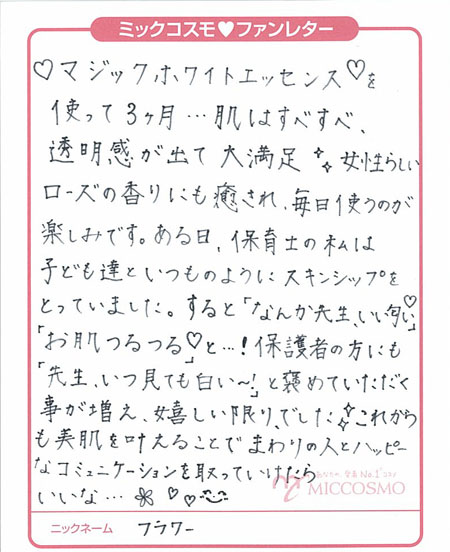 ミックコスモ♥ファンレター
♡マジックホワイトエッセンス♡を
使って3ヶ月…肌はすべすべ、
透明感が出て大満足 女性らしい
ローズの香りにも癒され、毎日使うのが
楽しみです。ある日、保育士の私は
子ども達といつものようにスキンシップを
とっていました。すると「なんか先生、いい匂い♡」
「お肌つるつる♡」と…!保護者の方にも
「先生、いつ見ても白い〜!」と褒めていただく
事が増え、嬉しい限りでした これから
も美肌を叶えることでまわりの人とハッピー
なコミュニケーションを取っていけたら
いいな…
MICCOSMO
ニックネーム フラワー